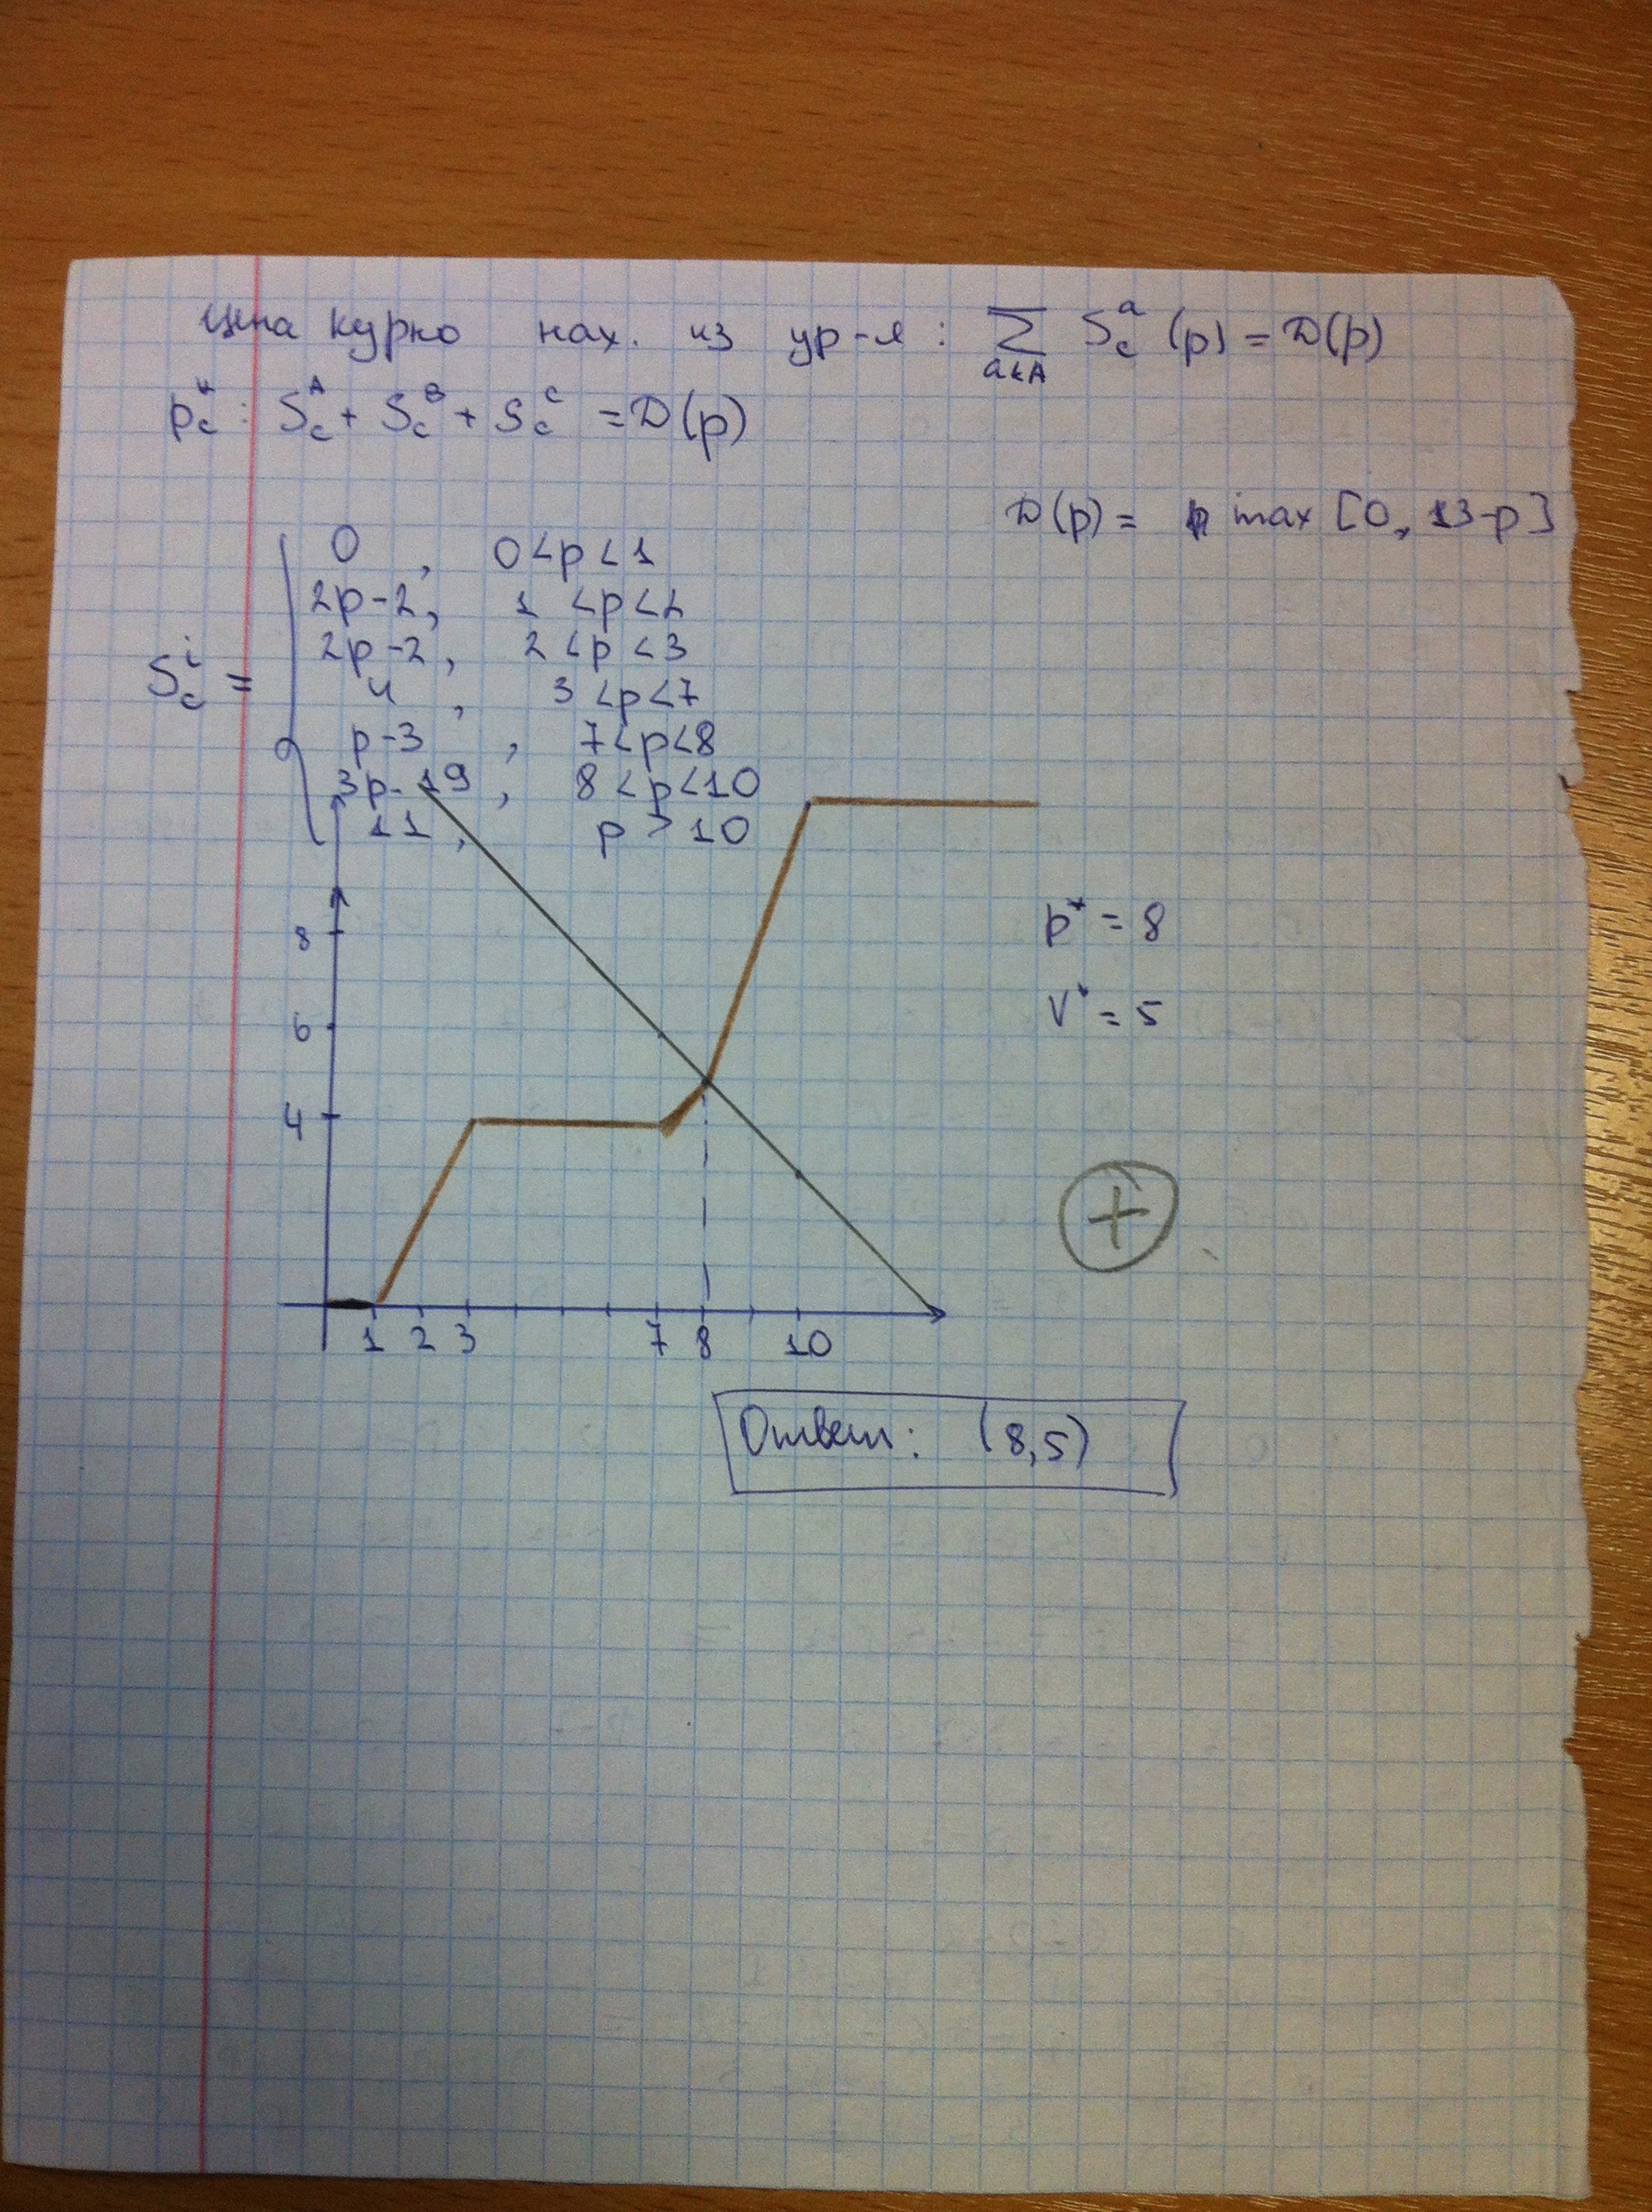 Цена курно нах. из ур-я: ∑ S_c^a (p) = D(p)
a∈A
p_c^*: S_c^A + S_c^B + S_c^C = D(p)
D(p) = max [0, 13-p]
0, 0<p<1
2p-2, 1<p<2
2p-2, 2<p<3
S_c^i =
4, 3<p<7
p-3, 7<p<8
3p-19, 8<p<10
11, p>10
8
p* = 8
6
V* = 5
4
+
1 2 3 7 8 10
Ответ: (8,5)